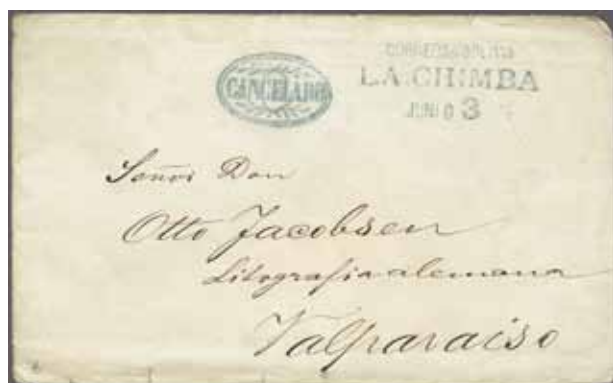 CANCELADO
CORREOS BOLIVIA
LA CHIMBA
JUNIO 3
Señor Don
Otto Jacobsen
Litografia alemana
Valparaiso